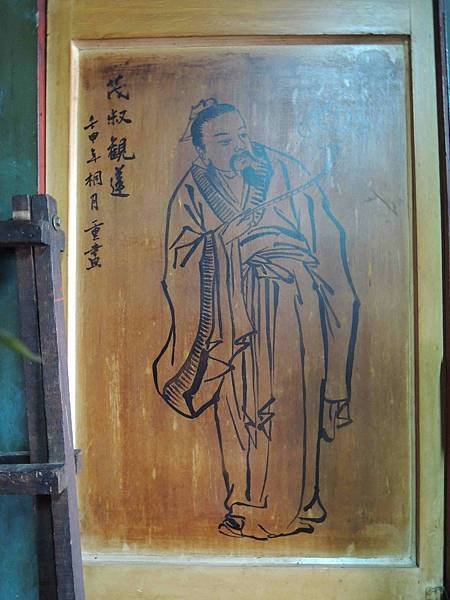 茂叔觀蓮
壬申年桐月重畫